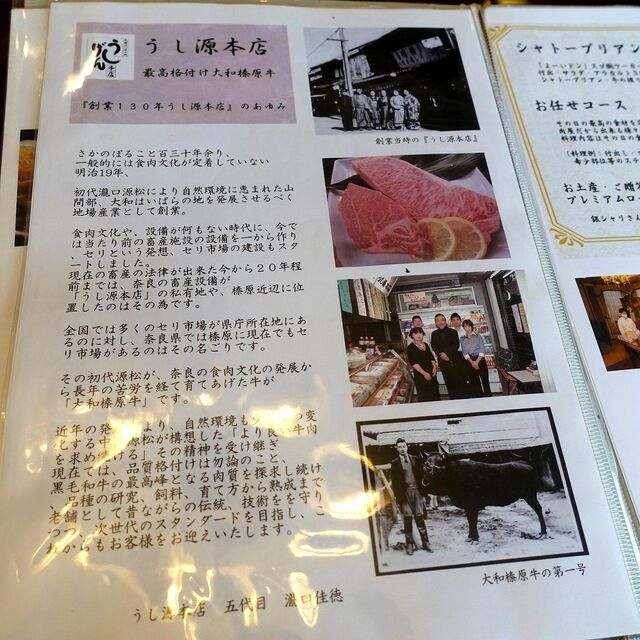 うし源本店
うし源本店
最高格付け大和榛原牛
『創業130年うし源本店』のあゆみ
創業当時の『うし源本店』
さかのぼること百三十年余り、
一般的には食肉文化が定着していない
明治19年、
初代瀧口源松により自然環境に恵まれた山
間部、大和はいばらの地を発展させるべく
地場産業として創業。
食肉文化や、設備が何もない時代に、今で
は当たり前の畜産施設の設備を一から作り
、セリという発想、セリ市場の建設もスタ
ートしました。
現在の畜産の法律が出来た今から20年程
前までは、奈良の畜産設備が
「うし源本店」の私有地や、榛原近辺に位
置したのはその為です。
全国では多くのセリ市場が県庁所在地にあ
るのに対し、奈良県では榛原に現在でもセ
リ市場があるのはその名ごりです。
その初代源松が、奈良の食肉文化の発展か
ら長年の苦労を経て育てあげた牛が
「大和榛原牛」です。
近年の発
より、自然環境も
の変
化する中
源松が構想した「より良い牛肉
を求め続ける」その精神を受け継ぎ
現在では、品質格付けは勿論のこと、
黒毛和牛の最高峰となる肉質を探求し続け
品種の研究、飼料、育て方から熟成まで
老舗として昔ながらの伝統、技術を守り
つつ、次世代のスタンダードを目指し、こ
れからもお客様をお迎えいたします。
大和榛原牛の第一号
うし源本店 五代目 瀧口佳徳
シャトーブリアン
付出・サラダ・アラカルト
シャトーブリアン
お任せコース
その日の最高の食材を
肉屋だから出来る
料理内容はその日の
(料理例:付出し・
希少部位等のス
お土産・ご贈
プレミアムロ
銀シャリさ